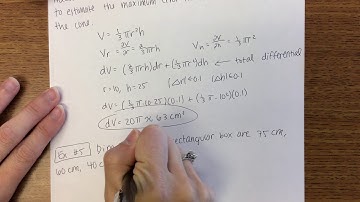 to estimate the maximum error
the cone.
V = ⅓πr²h
Vr = ∂V/∂r = ⅔πrh Vh = ∂V/∂h = ⅓πr²
dV = (⅔πrh)dr + (⅓πr²)dh ← total differential
r=10, h=25 |Δr|≤0.1 |Δh|≤0.1
dV = (⅔π·10·25)(0.1) + (⅓π·10²)(0.1)
dV = 20π ≈ 63 cm³
Ex #5 rectangular box are 75 cm,
60 cm, 40